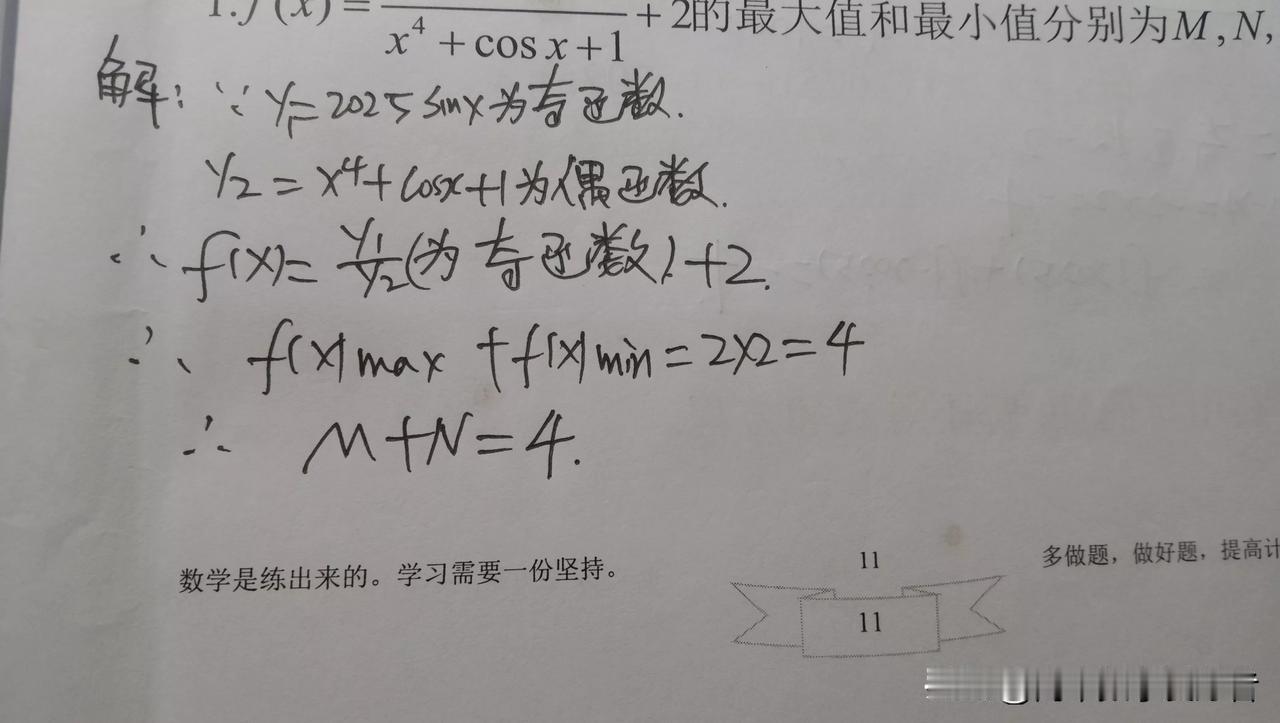 1.f(x)=/(x⁴+cos x+1)+2的最大值和最小值分别为M,N,
解:∵y₁=2025sinx为奇函数.
y₂=x⁴+cosx+1为偶函数.
∴f(x)=y₁/y₂(为奇函数)+2.
∴f(x)max+f(x)min=2×2=4
∴M+N=4.
数学是练出来的。学习需要一份坚持。
11
多做题，做好题，提高计
11